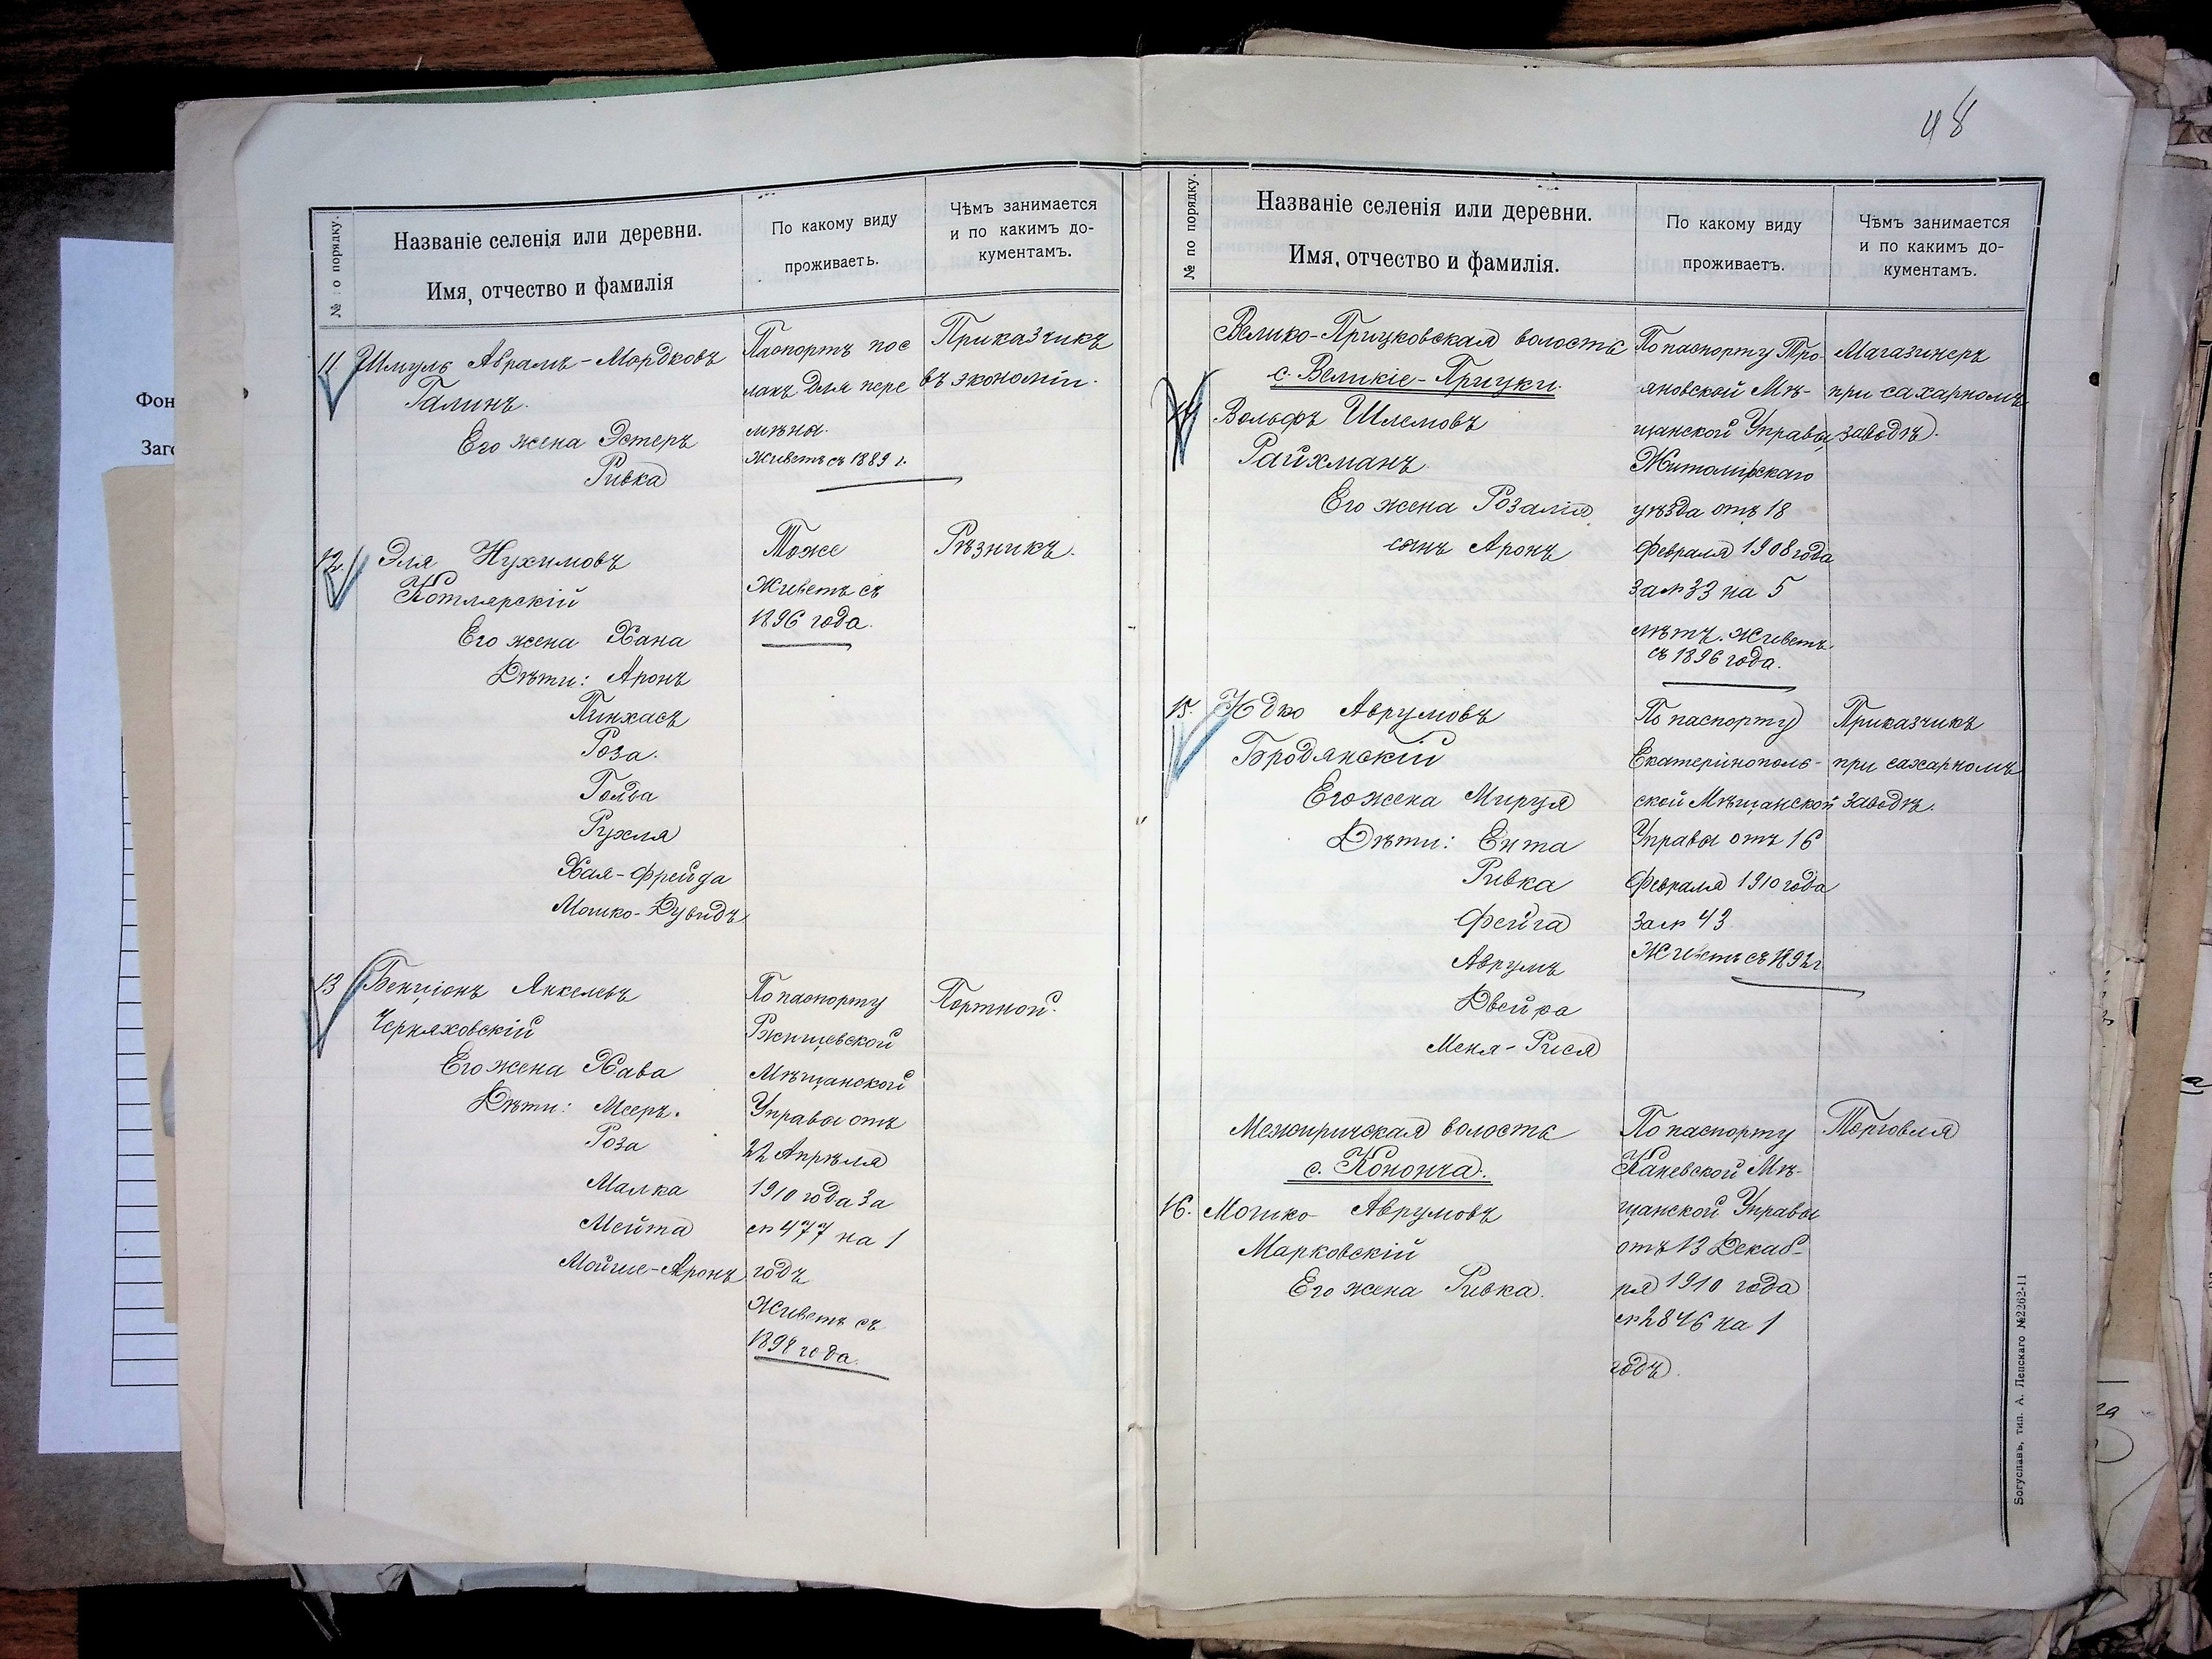 48
№ по порядку.
Названіе селенія или деревни.
Имя, отчество и фамилія
По какому виду
проживаетъ.
Чѣмъ занимается
и по какимъ до-
кументамъ.
11 Шмуль Аврамъ-Мордковъ
Галинъ.
Его жена Эстеръ
Ривка
Паспортъ пос
ланъ для пере
мѣны.
Живетъ съ 1889 г.
Приказчикъ
въ экономіи.
12. Эля Нухимовъ
Котлярскій
Его жена Хана
Дѣти: Аронъ
Пинхасъ
Роза.
Голда
Рухля
Хая-Фрейда
Мошко-Дувидъ
Тоже
Живетъ съ
1896 года.
Рѣзникъ.
13 Бенціонъ Янкелевъ
Черняховскій
Его жена Хава
Дѣти: Мееръ.
Роза
Малка
Мейта
Мойше-Аронъ
По паспорту
Ржищевской
Мѣщанской
Управы отъ
22 Апрѣля
1910 года за
№ 477 на 1
годъ
Живетъ съ
1898 года.
Портной.
№ по порядку.
Названіе селенія или деревни.
Имя, отчество и фамилія.
По какому виду
проживаетъ.
Чѣмъ занимается
и по какимъ до-
кументамъ.
Велико-Прицковская волость
с. Великіе-Прицки.
14 Вольфъ Шлемовъ
Райхманъ.
Его жена Розалія
сынъ Аронъ
По паспорту Тро-
яновской Мѣ-
щанской Управы,
Житомірскаго
уѣзда отъ 18
Февраля 1908 года
за № 33 на 5
лѣтъ. Живетъ
съ 1896 года.
Магазинеръ
при сахарномъ
заводѣ.
15. Юдко Аврумовъ
Бродянскій
Его жена Мируля
Дѣти: Ента
Ривка
Фейга
Аврумъ
Двейра
Меня-Рися
По паспорту
Екатеринополь-
ской Мѣщанской
Управы отъ 16
Февраля 1910 года
за № 43
Живетъ съ 1892 г
Приказчикъ
при сахарномъ
заводѣ.
Межиричская волость
с. Кононча.
16. Мошко Аврумовъ
Марковскій
Его жена Ривка.
По паспорту
Каневской Мѣ-
щанской Управы
отъ 13 Декаб-
ря 1910 года
№ 2846 на 1
годъ.
Торговля
Богуславъ, тип. А. Лепскаго №2262-11
Фон
Заго